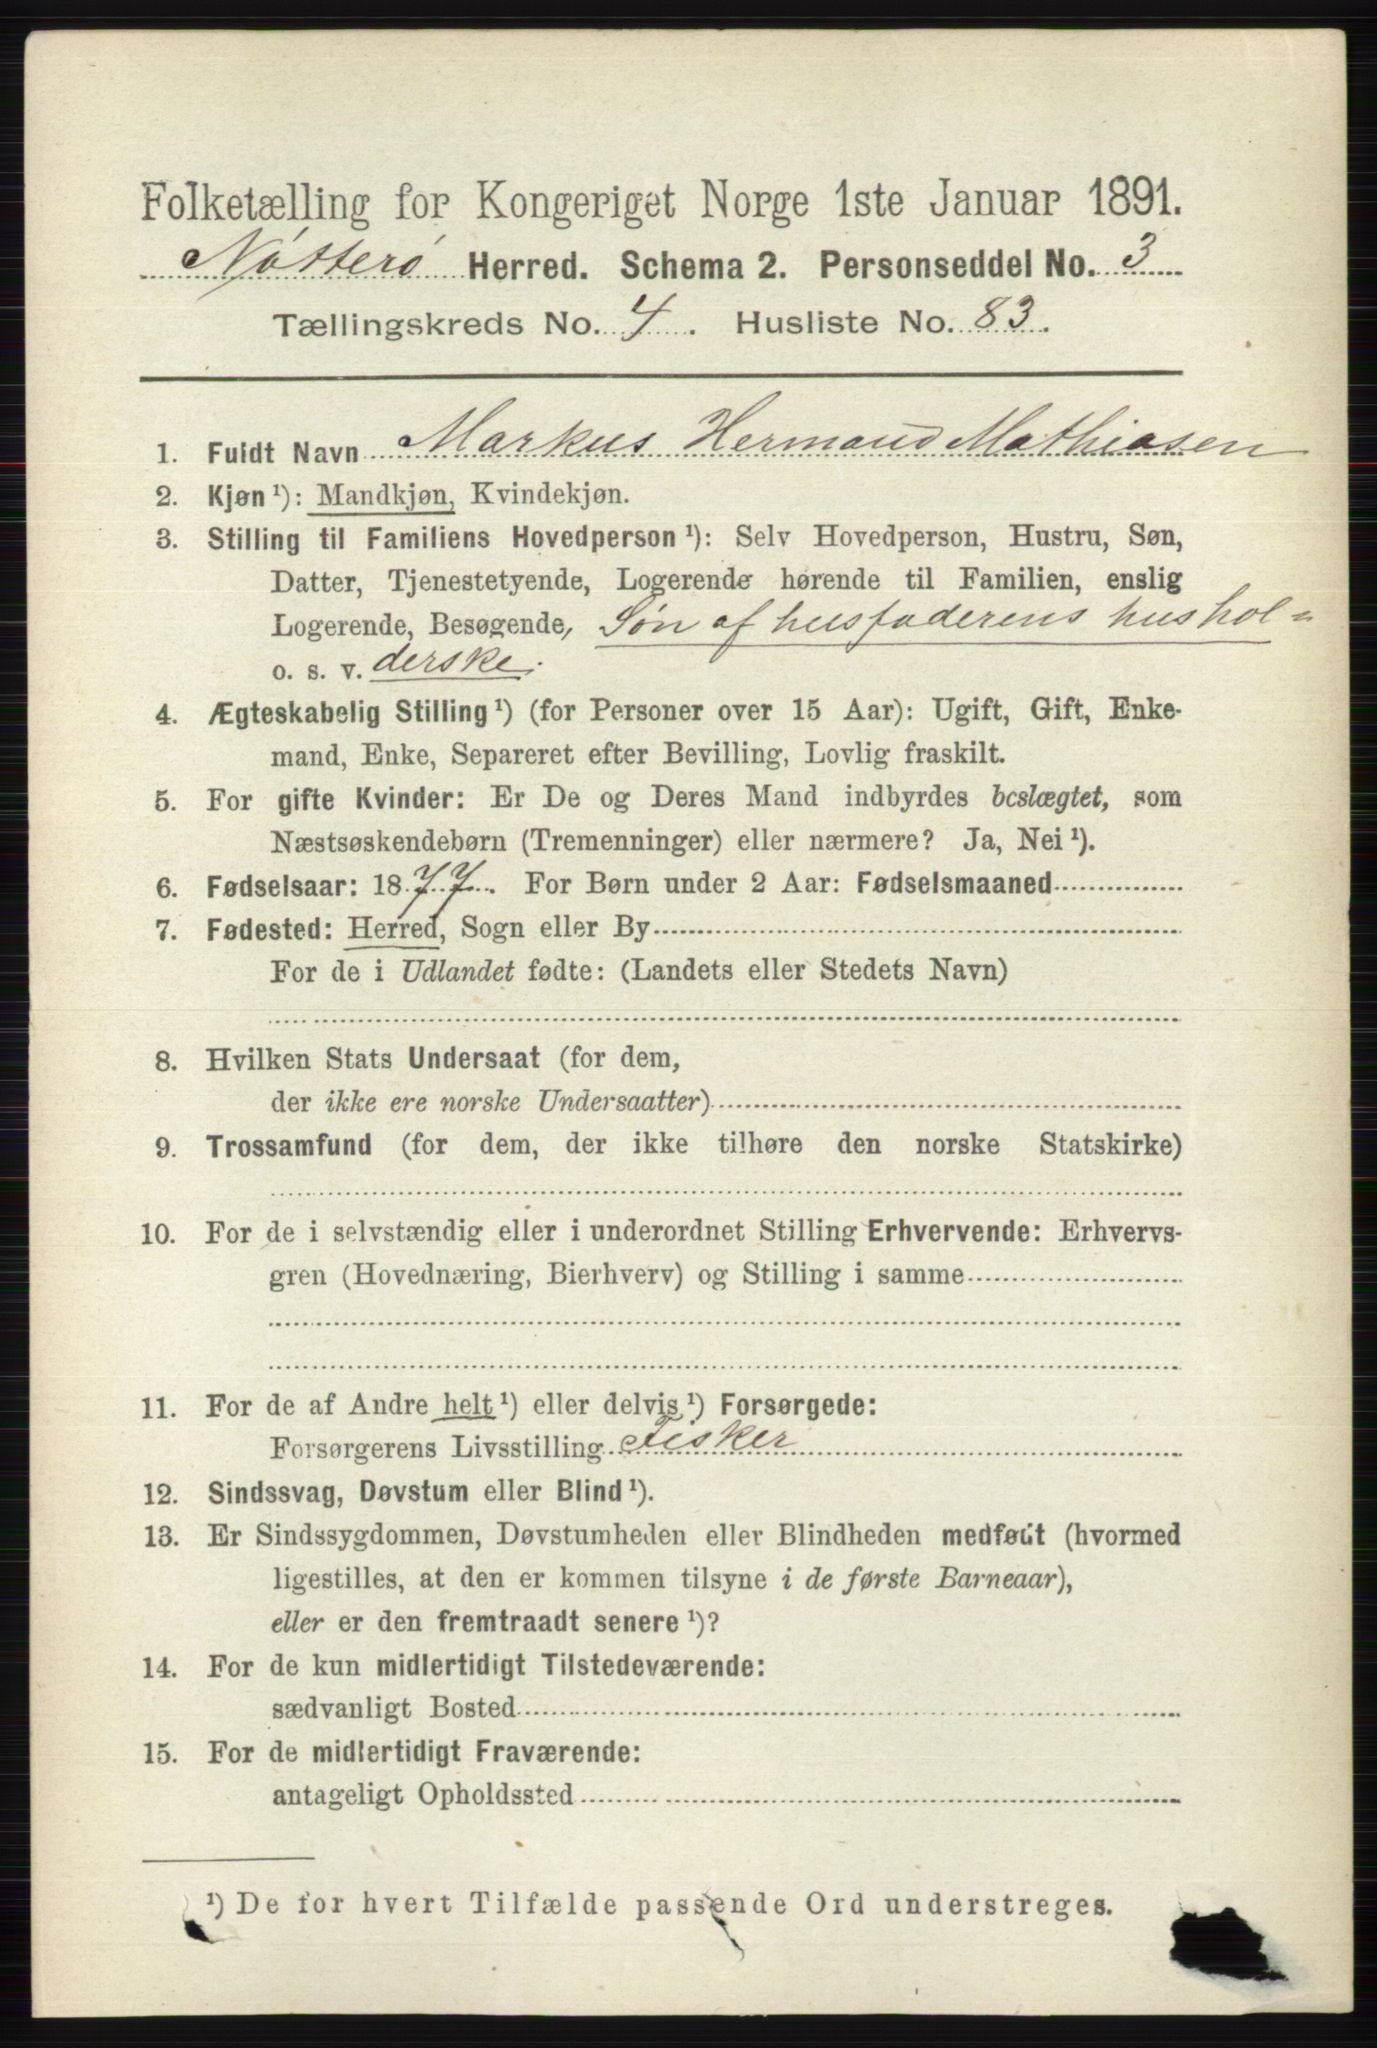 Folketælling for Kongeriget Norge 1ste Januar 1891.
Nøtterø Herred. Schema 2. Personseddel No. 3
Tællingskreds No. 4. Husliste No. 83.
1. Fuldt Navn Markus Hermand Mathiasen
2. Kjøn ¹): Mandkjøn, Kvindekjøn.
3. Stilling til Familiens Hovedperson ¹): Selv Hovedperson, Hustru, Søn,
Datter, Tjenestetyende, Logerende hørende til Familien, enslig
Logerende, Besøgende, Søn af husfaderens hushol=
o. s. v. derske.
4. Ægteskabelig Stilling ¹) (for Personer over 15 Aar): Ugift, Gift, Enke-
mand, Enke, Separeret efter Bevilling, Lovlig fraskilt.
5. For gifte Kvinder: Er De og Deres Mand indbyrdes beslægtet, som
Næstsøskendebørn (Tremenninger) eller nærmere? Ja, Nei ¹).
6. Fødselsaar: 1877. For Børn under 2 Aar: Fødselsmaaned
7. Fødested: Herred, Sogn eller By
For de i Udlandet fødte: (Landets eller Stedets Navn)
8. Hvilken Stats Undersaat (for dem,
der ikke ere norske Undersaatter)
9. Trossamfund (for dem, der ikke tilhøre den norske Statskirke)
10. For de i selvstændig eller i underordnet Stilling Erhvervende: Erhvervs-
gren (Hovednæring, Bierhverv) og Stilling i samme
11. For de af Andre helt ¹) eller delvis ¹) Forsørgede:
Forsørgerens Livsstilling Fisker
12. Sindssvag, Døvstum eller Blind ¹).
13. Er Sindssygdommen, Døvstumheden eller Blindheden medfødt (hvormed
ligestilles, at den er kommen tilsyne i de første Barneaar),
eller er den fremtraadt senere ¹)?
14. For de kun midlertidigt Tilstedeværende:
sædvanligt Bosted
15. For de midlertidigt Fraværende:
antageligt Opholdssted
¹) De for hvert Tilfælde passende Ord understreges.